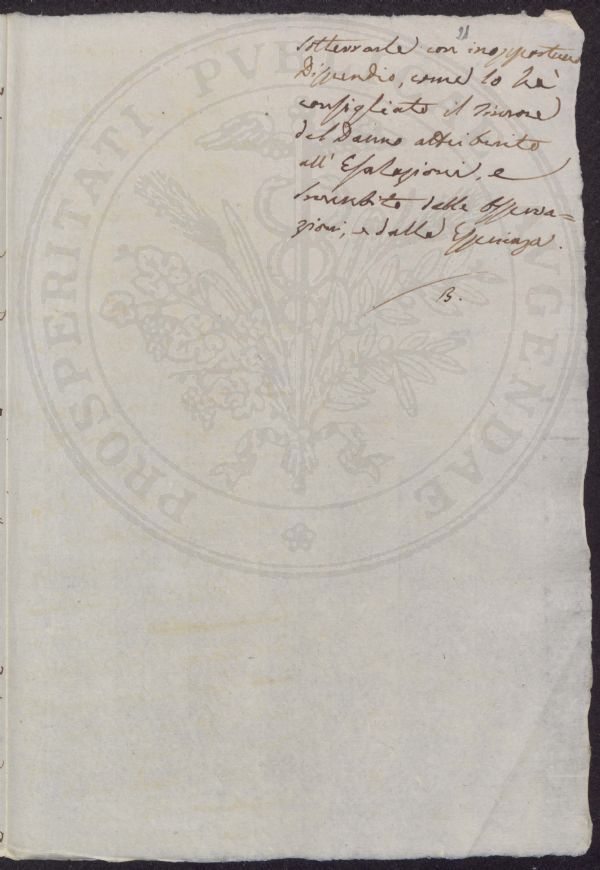 sotterrarle con inopportuno
Dispendio, come lo hà
consigliato il timore
del Danno attribuito
all' Esalazioni, e
smentito dalle Osserva=
zioni, e dalla Esperienza.
B.
PROSPERITATI PUBLICAE AUGENDAE